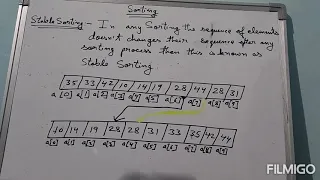 Sorting
Stable Sorting - In any Sorting the sequence of elements
doesn't changes their sequence after any
sorting process then this is known as
Stable Sorting
35 33 42 10 14 19 28 44 28 31
a[0] a[1] a[2] a[3] a[4] a[5] a[6] a[7] a[8] a[9]
10 14 19 28 28 31 33 35 42 44
a[0] a[1] a[2] a[3] a[4] a[5] a[6] a[7] a[8] a[9]
FILMIGO